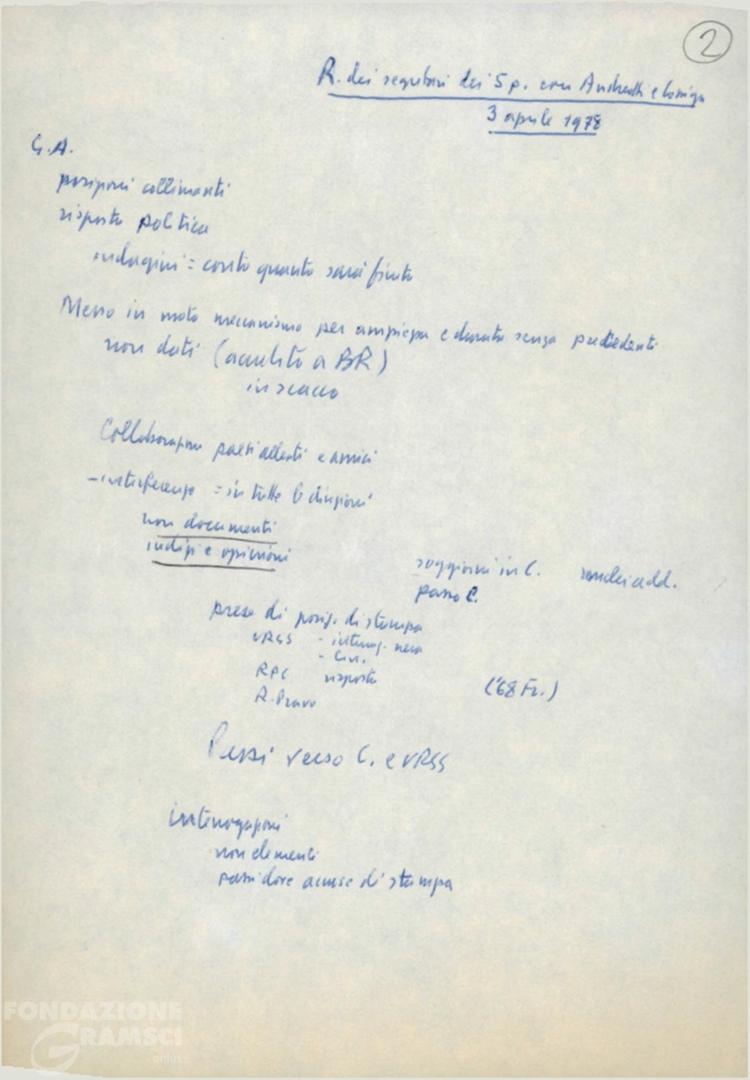 2
R. dei segretari dei 5 p. con Andreotti e Cossiga
3 aprile 1978
G.A.
posizioni collimanti
risposta politica
indagini = conto quanto sarà finita
Messo in moto meccanismo per ampiezza e durata senza precedenti
non dati (acculto a BR)
in scacco
Collaborazione paesi alleati e amici
- interferenze = in tutte le direzioni
non documenti
indizi e opinioni
soggiorni in C. add.
passo C.
prese di posiz. di stampa
URSS - interrog. nera
-
RPC risposta
R. Pravo
('68 Fr.)
Passi verso C. e URSS
interrogazioni
non elementi
accuse di stampa
FONDAZIONE
GRAMSCI
onlus